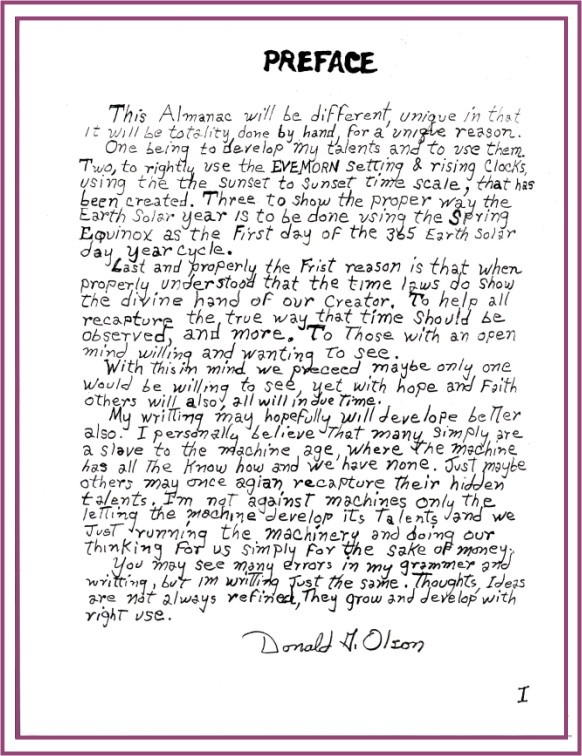 PREFACE
This Almanac will be different, unique in that
it will be totality, done by hand, for a unique reason.
One being to develop my talents and to use them.
Two, to rightly use the EVEMORN setting & rising Clocks,
using the the sunset to sunset time scale, that has
been created. Three to show the proper way the
Earth Solar year is to be done using the Spring
Equinox as the First day of the 365 Earth Solar
day year cycle.
Last and properly the Frist reason is that when
properly understood that the time laws do show
the divine hand of our Creator. To help all
recapture the true way that time should be
observed, and more. To Those with an open
mind willing and wanting To see.
With this in mind we preceed maybe only one
would be willing to see, yet with hope and Faith
others will also, all will in due time.
My writting may hopefully will develope better
also. I personally believe that many simply are
a slave to the machine age, where the machine
has all the Know how and we have none. Just maybe
others may once agian recapture their hidden
talents. I'm not against machines only the
letting the machine develop its Talents and we
Just running the machinery and doing our
thinking for us simply for the sake of money.
You may see many errors in my grammer and
writting, but im writting Just the same. Thoughts, Ideas
are not always refined, They grow and develop with
right use.
Donald G. Olson
I